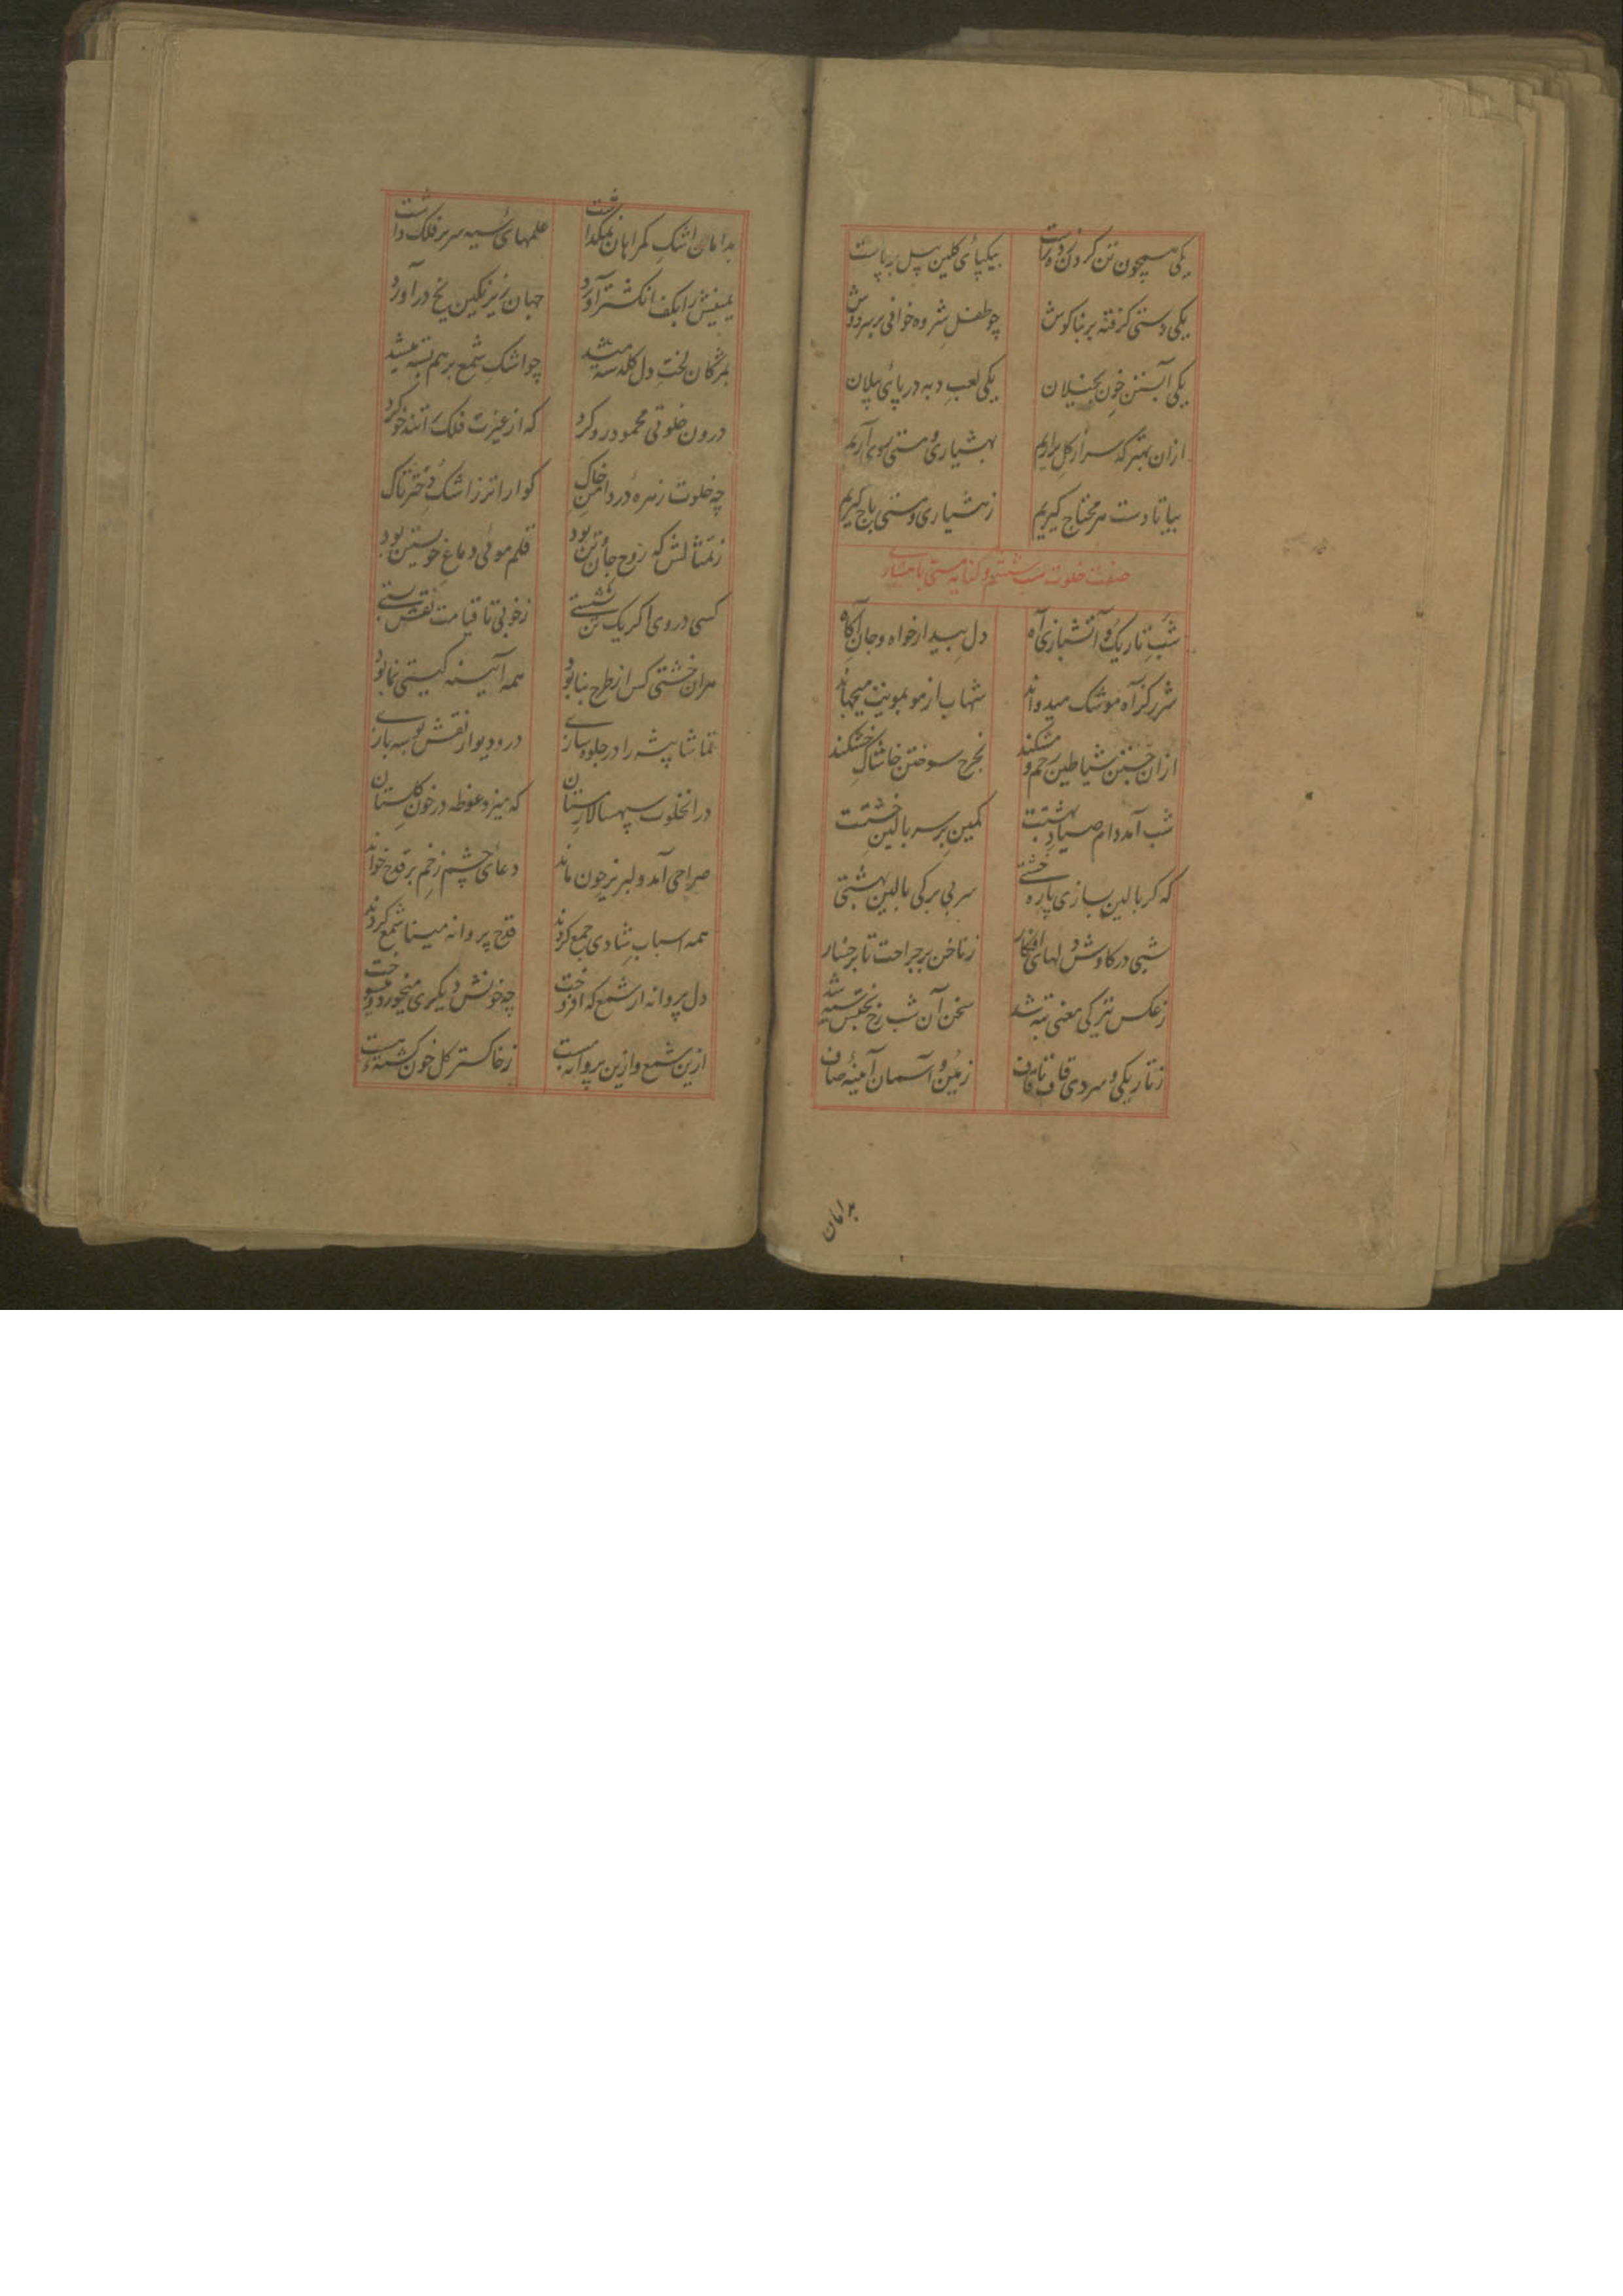 یکی همچون تن گردن زده راست بیکپای کلین پیل برپاست
یکی دستی گرفته بر بناگوش چو طفل شروه خوانی بر سر دوش
یکی آبستن خون بخیلان یکی لعب دبه در پای پیلان
ازان بهتر که سر از گل براریم بهشیاری و مستی سوی آریم
بیا تا دست هر محتاج گیریم ز هشیاری و مستی باج گیریم
صفت خلوت شب ششم و کنایه مستی با هشیاری
شب تاریک و آتشبازی آه دل بیدار خواه و جان آگاه
شرر کز آه موشک میدواند شهاب از مو بمویت میجهاند
ازان جستن شیاطین رحم و مشکند بجرح سوختن خاشاک خشکند
شب آمد دام صیاد بهشتت کمین بر سر بالین خشتت
که گر بالین بسازی پاره خشتی سر بی برگی بالین بهشتی
شبی در کاوش دلهای افگار ز ناخن بر جراحت تا برخسار
ز عکس تیرگی معنی تبه شد سخن آن شب رخ بختش سیه شد
ز تاریکی و سردی قاف تا قاف زمین و آسمان آئینه صاف
بدامان
بدامان اشک گمراهان نمیگذاشت علمهای سیه سر بر فلک داشت
یمینش را بکف انگشتر آورد جهان زیر نگین یخ درآورد
بمژگان لخت دل گلدسته میشد چو اشک شمع برهم بسته میشد
درون خلوتی محمود رو کرد که از غیرت فلک را تندخو کرد
چه خلوت زهره در دامن خاک گوارا تر ز اشک دختر تاک
ز تمثالش که روح جان و تن بود قلم موئی دماغ خویشتن بود
کسی در وی اگر یک تن نشستی ز خوبی تا قیامت نقش بستی
هران خشتی کس از طرح بنا بود همه آیینه گیتی نما بود
تماشا پیشه را در جلوه سازی در و دیوار نقش بوسه بازی
درانخلوت سپهسالار مستان که میزد غوطه در خون گلستان
صراحی آمد و لبریز چون ماند دعای چشم زخم بر قدح خواند
همه اسباب شادی جمع کردند قدح پروانه مینا شمع کردند
دل پروانه از شمع که افروخت چه خونش دیگری میخورد و میسوخت
ازین شمع و ازین پروانه مست ز خاکستر گل خون گشته هست